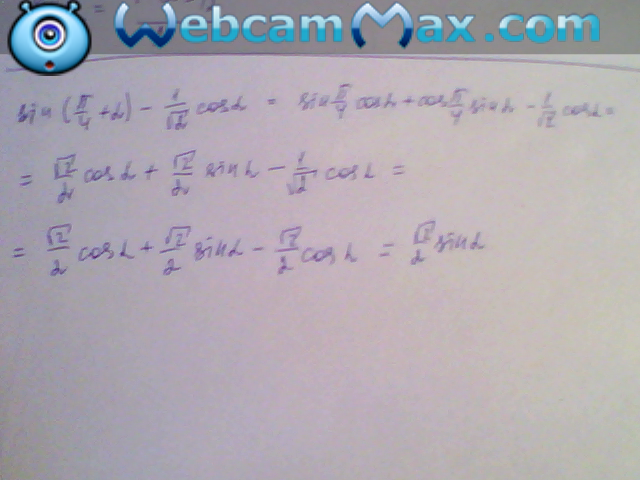 WebcamMax.com
sin(π/4 + α) - 1/√2 cosα = sin π/4 cosα + cos π/4 sinα - 1/√2 cosα =
= √2/2 cosα + √2/2 sinα - 1/√2 cosα =
= √2/2 cosα + √2/2 sinα - √2/2 cosα = √2/2 sinα